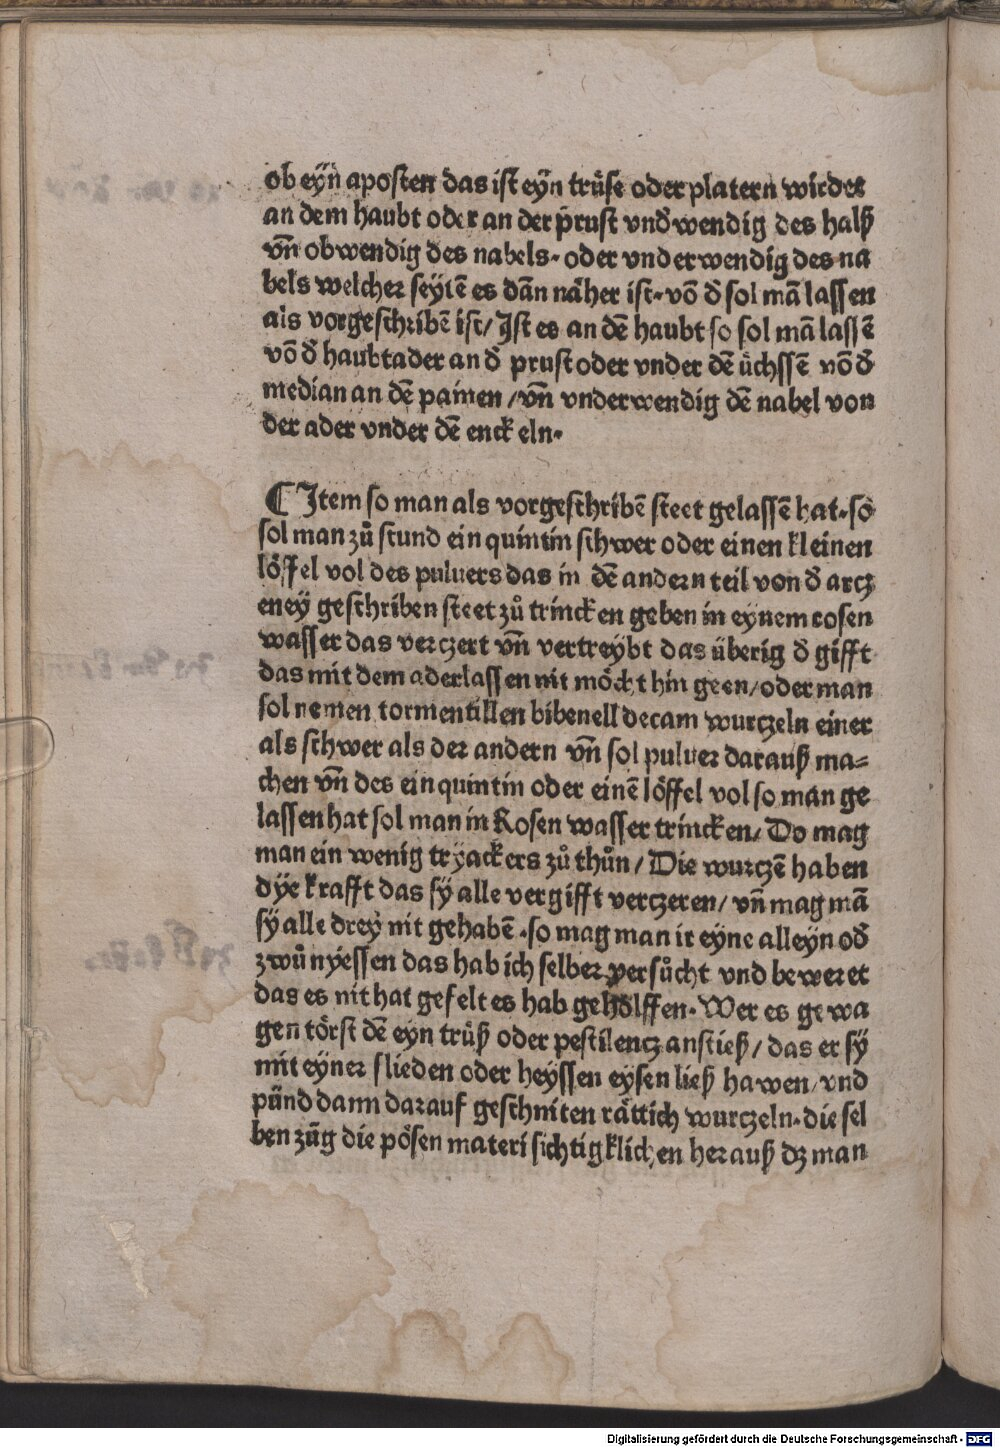 ob eÿn aposten das ist eÿn trüse oder platern wirdet
an dem haubt oder an der p̄rust vnd̕wendig des halß
vn̄ obwendig des nabels· oder vnderwendig des na
bels welcher seÿtē es dān näher ist· vō d̕ sol mā lassen
als vorgeschribē ist/ Ist es an dē haubt so sol mā lassē
vō d̕ haubtader an d̕ prust oder vnder dē üchssē võ d̕
median an dē painen /vn̄ vnderwendig dē nabel von
der ader vnder dē enckeln·
¶ Item so man als vorgeschribē steet gelassē hat· so
sol man zů stund ein quintin schwer oder einen kleinen
löffel vol des puluers das in dē andern teil von d̕ arcz
eneÿ geschriben steet zů trincken geben in eynem rosen
wasser das verczert vn̄ vertreÿbt das überig d̕ gifft
das mit dem aderlassen nit möcht hin geen/ oder man
sol nemen tormentillen bibenell decam wurczeln einer
als schwer als der andern vn̄ sol puluer darauß ma=
chen vn̄ des ein quintin oder einē löffel vol so man ge
lassen hat sol man in Rosen wasser trincken/ Do mag
man ein wenig trÿackers zů thůn/ Die wurczē haben
dÿe krafft das sÿ alle vergifft verczeren/ vn̄ mag mā
sÿ alle dreÿ nit gehabē ·so mag man ir eÿne alleÿn od̕
zwů nÿessen das hab ich selber persůcht vnd beweret
das es nit hat gefelt es hab geholffen· Wer es gewa
gen törst dē eyn trüß oder pestilencz anstieß/ das er sÿ
mit eÿner flieden oder heÿssen eÿsen ließ hawen/ vnd
pünd dann darauf geschniten rättich wurczeln· die sel
ben züg die pösen materi sichtigklichen herauß dz man
Digitalisierung gefördert durch die Deutsche Forschungsgemeinschaft - DFG